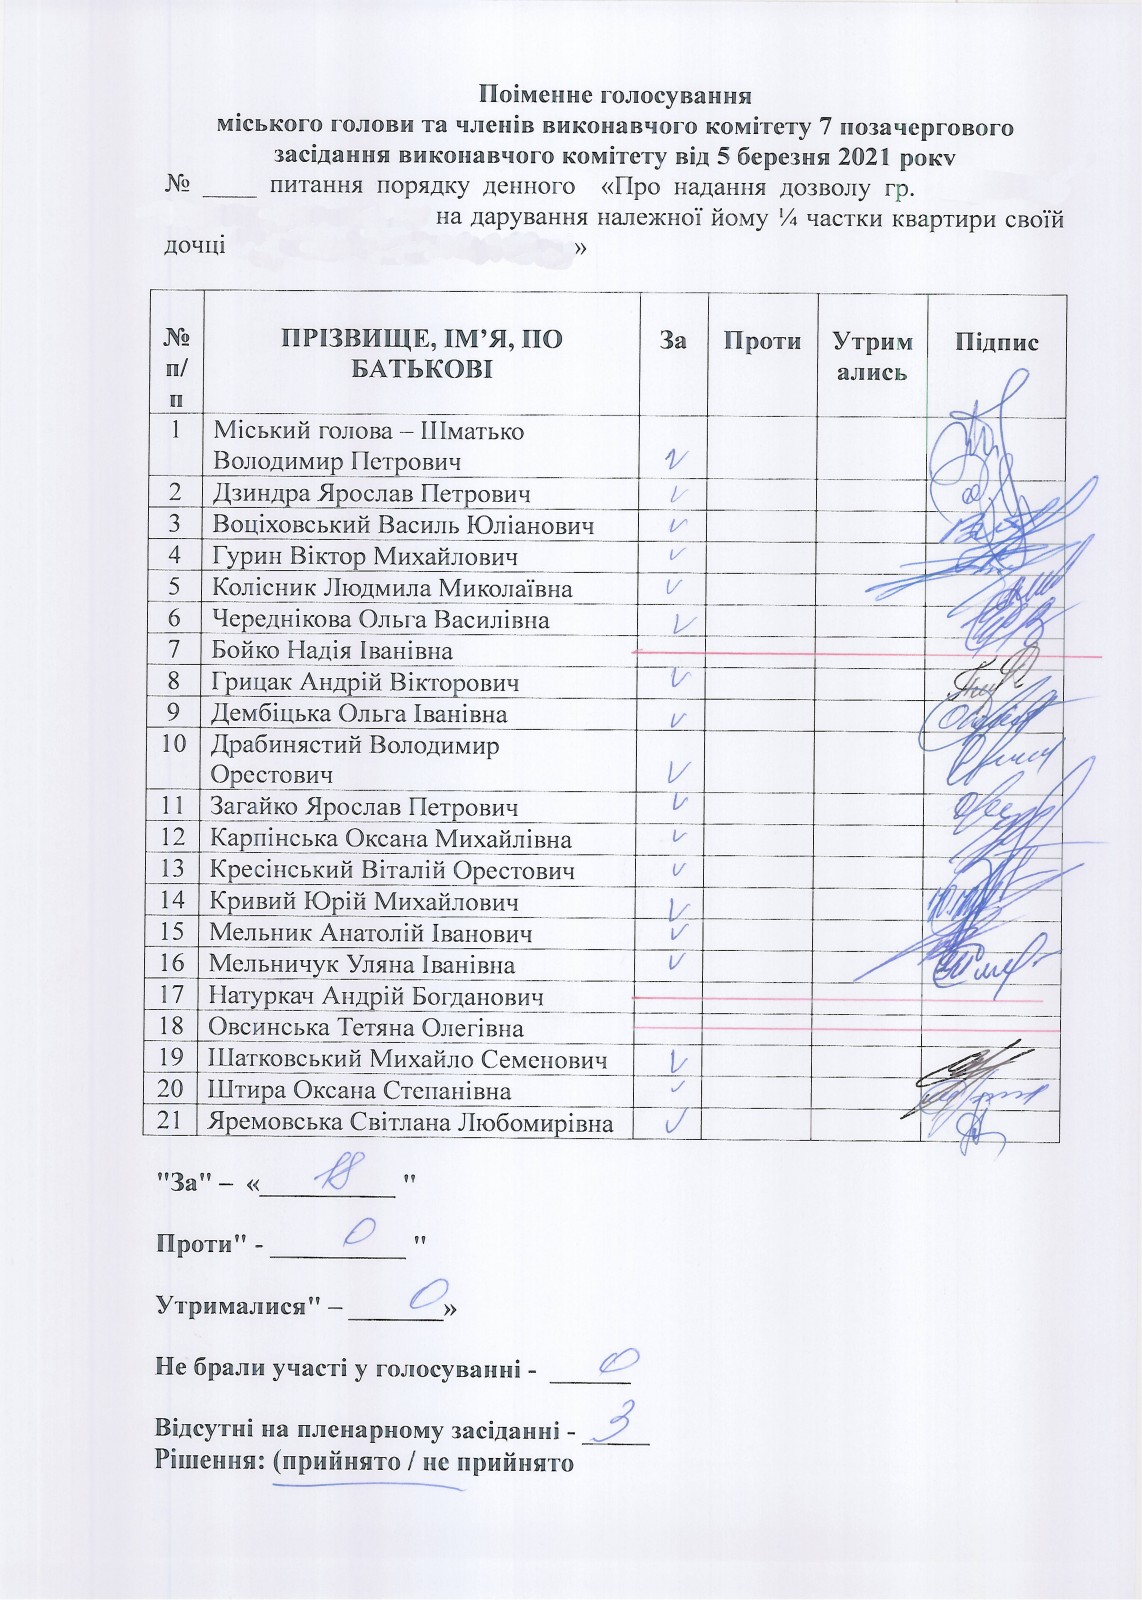 Поіменне голосування
міського голови та членів виконавчого комітету 7 позачергового
засідання виконавчого комітету від 5 березня 2021 року
№ ____ питання порядку денного «Про надання дозволу гр.
на дарування належної йому ¼ частки квартири своїй
дочці »
№ п/п ПРІЗВИЩЕ, ІМ’Я, ПО БАТЬКОВІ За Проти Утримались Підпис
1 Міський голова – Шматько
Володимир Петрович V
2 Дзиндра Ярослав Петрович V
3 Воціховський Василь Юліанович V
4 Гурин Віктор Михайлович V
5 Колісник Людмила Миколаївна V
6 Череднікова Ольга Василівна V
7 Бойко Надія Іванівна
8 Грицак Андрій Вікторович V
9 Дембіцька Ольга Іванівна V
10 Драбинястий Володимир
Орестович V
11 Загайко Ярослав Петрович V
12 Карпінська Оксана Михайлівна V
13 Кресінський Віталій Орестович V
14 Кривий Юрій Михайлович V
15 Мельник Анатолій Іванович V
16 Мельничук Уляна Іванівна V
17 Натуркач Андрій Богданович
18 Овсинська Тетяна Олегівна
19 Шатковський Михайло Семенович V
20 Штира Оксана Степанівна V
21 Яремовська Світлана Любомирівна V
"За" – «18"
Проти" - 0 "
Утрималися" – 0»
Не брали участі у голосуванні - 0
Відсутні на пленарному засіданні - 3
Рішення: (прийнято / не прийнято